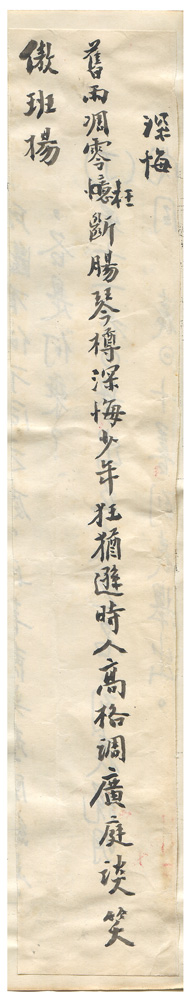 深悔
舊雨凋零憶枉斷腸琴樽深悔少年狂猶遜時人高格調廣庭談笑
傲班揚